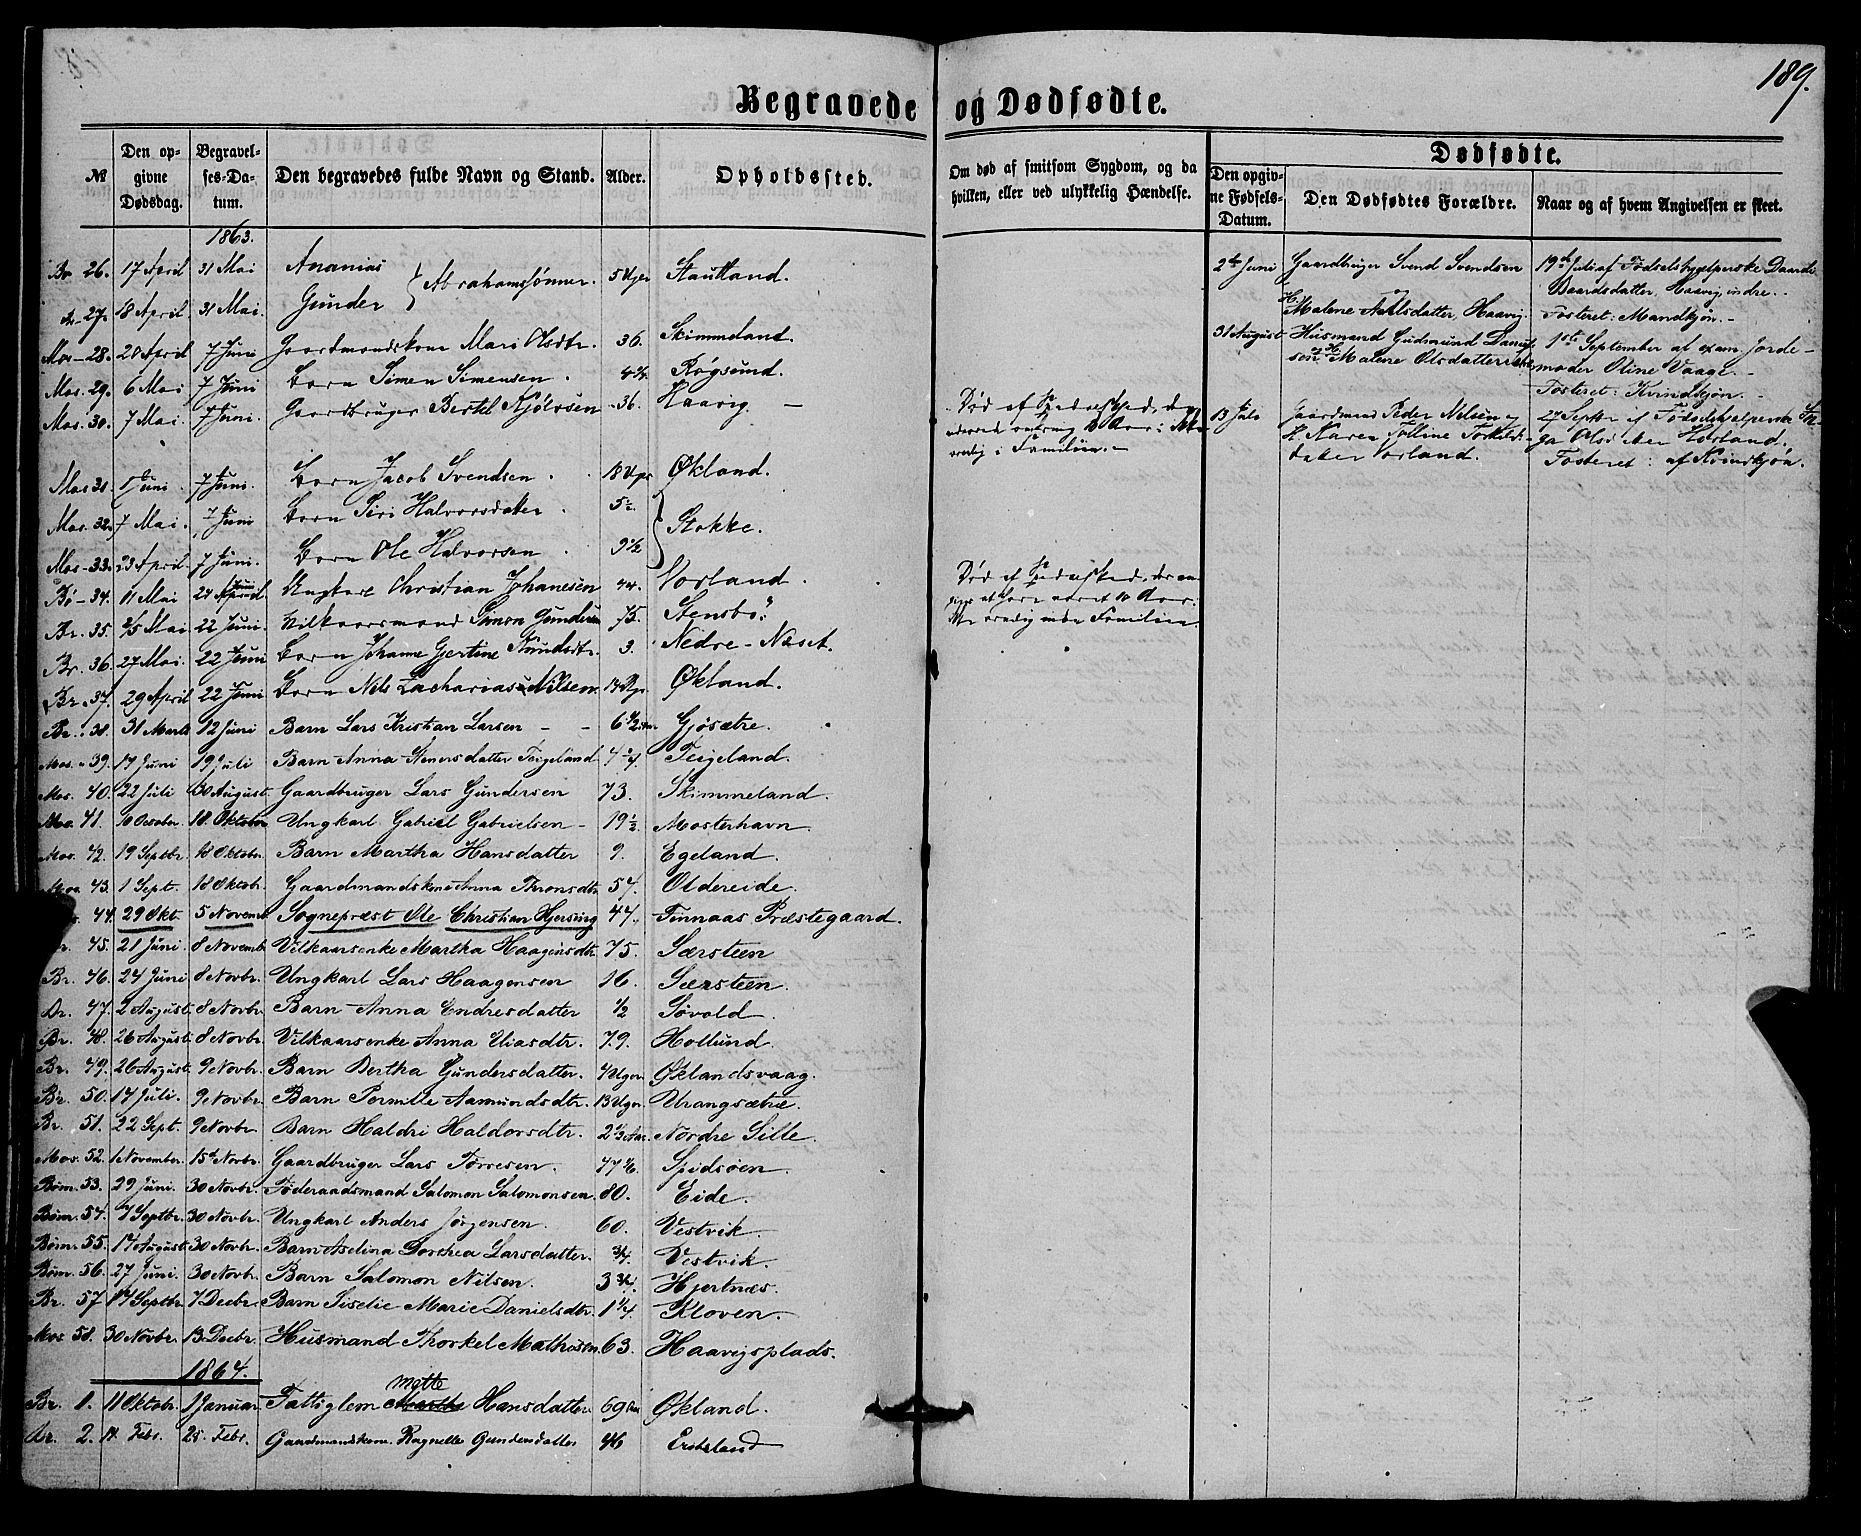 189.
Begravede og Dødfødte.
№ Den opgivne Dødsdag. Begravelses-Datum. Den begravedes fulde Navn og Stand. Alder. Opholdssted. Om død af smitsom Sygdom, og da hvilken, eller ved ulykkelig Hændelse. Dødfødte. Den opgivne Fødsels-Datum. Den Dødfødtes Forældre. Naar og af hvem Angivelsen er skeet.
1863.
Br. 26. 17 April 31 Mai Ananias } Abrahamsønner. 5 Uger Stautland.
Br. 27. 18 April. 31 Mai. Gunder
Mos. 28. 20 April 7 Juni Gaardmandskone Mari Olsdtr. 36. Skimmeland.
Mos. 29. 6 Mai 7 Juni Barn Simen Simensen. Røgsund.
Mos. 30. 7 Mai. 7 Juni. Gaardbruger Bertel 36. Haavig.
Mos. 31. Juni. 7 Juni. Barn Jacob Svendsen. 18 Uger Økland.
Mos. 32. 7 Mai. 7 Juni Barn Siri Halvorsdatter. } Stokke.
Mos. 33. 23 April. 7 Juni. Barn Ole Halvorsen. 9 1/2
Bø. 34. 11 Mai Ungkarl Christian Johanesen 44. Vorland.
Br. 35. Mai 22 Juni. Vilkaarsmand Simon 75. Stensbø.
Br. 36. 27 Mai. 22 Juni Barn Johanne Gertine Knudsdtr. 3. Nedre-Næset.
Br. 37. 29 April 22 Juni Barn Nils Zacharias Nilsen Økland.
Br. 38. 31 Marts 12 Juni Barn Lars Kristian Larsen Gjøsætre.
Mos. 39. 17 Juni 19 Juli Barn Anna Steinersdatter Teigeland Teigeland.
Mos. 40. 22 Juli 30 August. Gaardbruger Lars Gundersen 73. Skimmeland.
Mos. 41. 10 October. 18. Oktober Ungkarl Gabriel Gabrielsen 19 1/2 Mosterhavn.
Mos. 42. 19 Septbr. 18 Oktobr. Barn Martha Hansdatter 9. Egeland.
Mos. 43. 1 Sept. 18 Oktobr. Gaardmandskone Anna Thronsdtr 57. Oldereide.
44. 29 Okt. 5 Novemb. Sognepræst Ole Christian Hjersing 47. Finnaas Præstegaard.
Br. 45. 21 Juni. 8 Novemb. Vilkaarsenke Martha Haagensdtr. 75. Særsteen
Br. 46. 24 Juni 8 Novbr. Ungkarl Lars Haagensen 16. Særsteen.
Br. 47. 2 August. 8 Novbr. Barn Anna Endresdatter 1/2 Søvold.
Br. 48. 26 August. 8 Novbr. Vilkaarsenke Anna Eliasdtr. 79. Hollund.
Br. 49. 26 August. 9 Novbr. Barn Bertha Gundersdatter. 4 Uger Øklandsvaag.
Br. 50. 17 Juli. 9 Novbr. Barn Pernille Aamundsdtr. 13 Uger Urangsætre.
Br. 51. 22 Sept. 9 Novbr. Barn Haldri Haldorsdtr. 2 1/3 Aar. Nordre Sille.
Mos. 52. 1 November. 15d Novbr. Gaardbruger Lars Torresen. Spidsøen.
Bøm. 53. 29 Juni. 30 Novbr. Føderaadsmand Salomon Salomonsen 80. Eide.
Bøm. 54. 7 Septbr. 30 Novbr. Ungkarl Anders Jørgensen. 60. Vestvik.
Bøm. 55. 17 August. 30 Novbr. Barn Aselina Dorthea Larsdatter. 3/4. Vestvik.
Bøm. 56. 27 Juni. 30 Novbr. Barn Salomon Nilsen. 3 3/4. Hjertnæs.
Br. 57 14 Septbr. 7 Decbr. Barn Siselie Marie Danielsdtr. 1 1/4 Kloven.
Mos. 58. 30 Novbr. 13 Decbr. Husmand Thorkel Mathisen. 63. Haavigsplads.
1864.
Br. 1. 11 Oktobr. 1 Januar. Fattiglem Mette Martha Hansdatter 69 Økland.
Br. 2. 14. Febr. 25. Febr. Gaardmandskone Ragnelle Gundersdatter 46
Død af Spedalskhed, den
Familien.
Død af Spedalskhed, der an-
gives at have varet 10 Aar.
Familien.
2den Juni Gaardbruger Svend Svendsen
H. Malene Haavig.
19de Juli af Fødselshjelperske
Baardsdatter, Haavig indre.
Fosteret: Mandkjøn.
31 August Husmand Gudmund
Malene Olsdatter
1ste September af exam. Jorde-
moder Oline Vaage.
Fosteret: Kvindkjøn.
13 Juli Gaardmand Peder Nelsen og
H. Karen
datter Vorland.
27 Septbr af Fødselshjelperske
Olsdatter Vorland.
Fosteret: af Kvindkjøn.